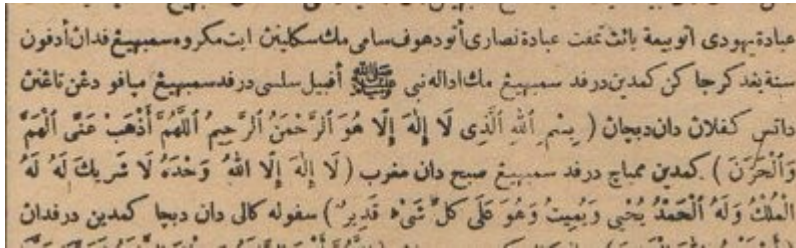 عبادة يهودى اتو بيعة يائت تمفت عبادة نصارى اتو دهوف سامى مك سكلين ايت مكروه سمبهيڠ فدان ادفون
سنة يڠد كرجاكن كمدين درفد سمبهيڠ مك اداله نبى ﷺ أفبيل سلسى درفد سمبهيڠ مياڤو دڠن تاڠنن
داتس كفلان دان دبچان ( بِسْمِ ٱللّٰهِ ٱلَّذِى لَا إِلٰهَ إِلَّا هُوَ ٱلرَّحْمٰنُ ٱلرَّحِيمُ ٱللّٰهُمَّ أَذْهَبْ عَنِّى ٱلْهَمَّ
وَٱلْحَزَنَ ) كمدين ممباچ درفد سمبهيڠ صبح دان مغرب ( لَا إِلٰهَ إِلَّا اللّٰهُ وَحْدَهُ لَا شَرِيكَ لَهُ لَهُ
الْمُلْكُ وَلَهُ الْحَمْدُ يُحْيِى وَيُمِيتُ وَهُوَ عَلَى كُلِّ شَىْءٍ قَدِيرٌ ) سفوله كالى دان دبچا كمدين درفدان